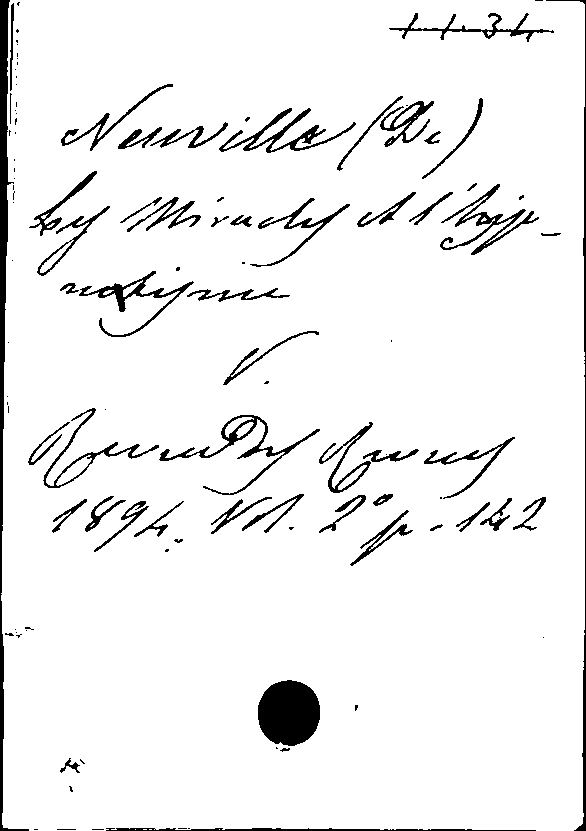 1134
Neuville (De)
Les Miracles et l'hyp-
notisme
V.
Revue Des Revues
1894. Vol. 2° p. 142